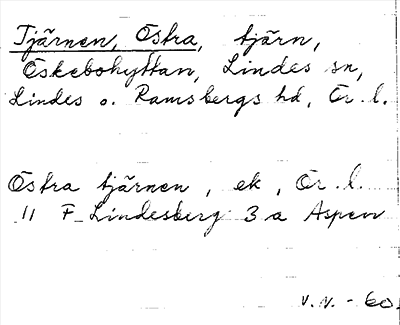 Tjärnen, Östra, tjärn,
Öskebohyttan, Lindes sn,
Lindes o. Ramsbergs hd, Ör. l.
Östra tjärnen, ek, Ör. l.
11 F Lindesberg 3 a Aspen
V.V. - 60